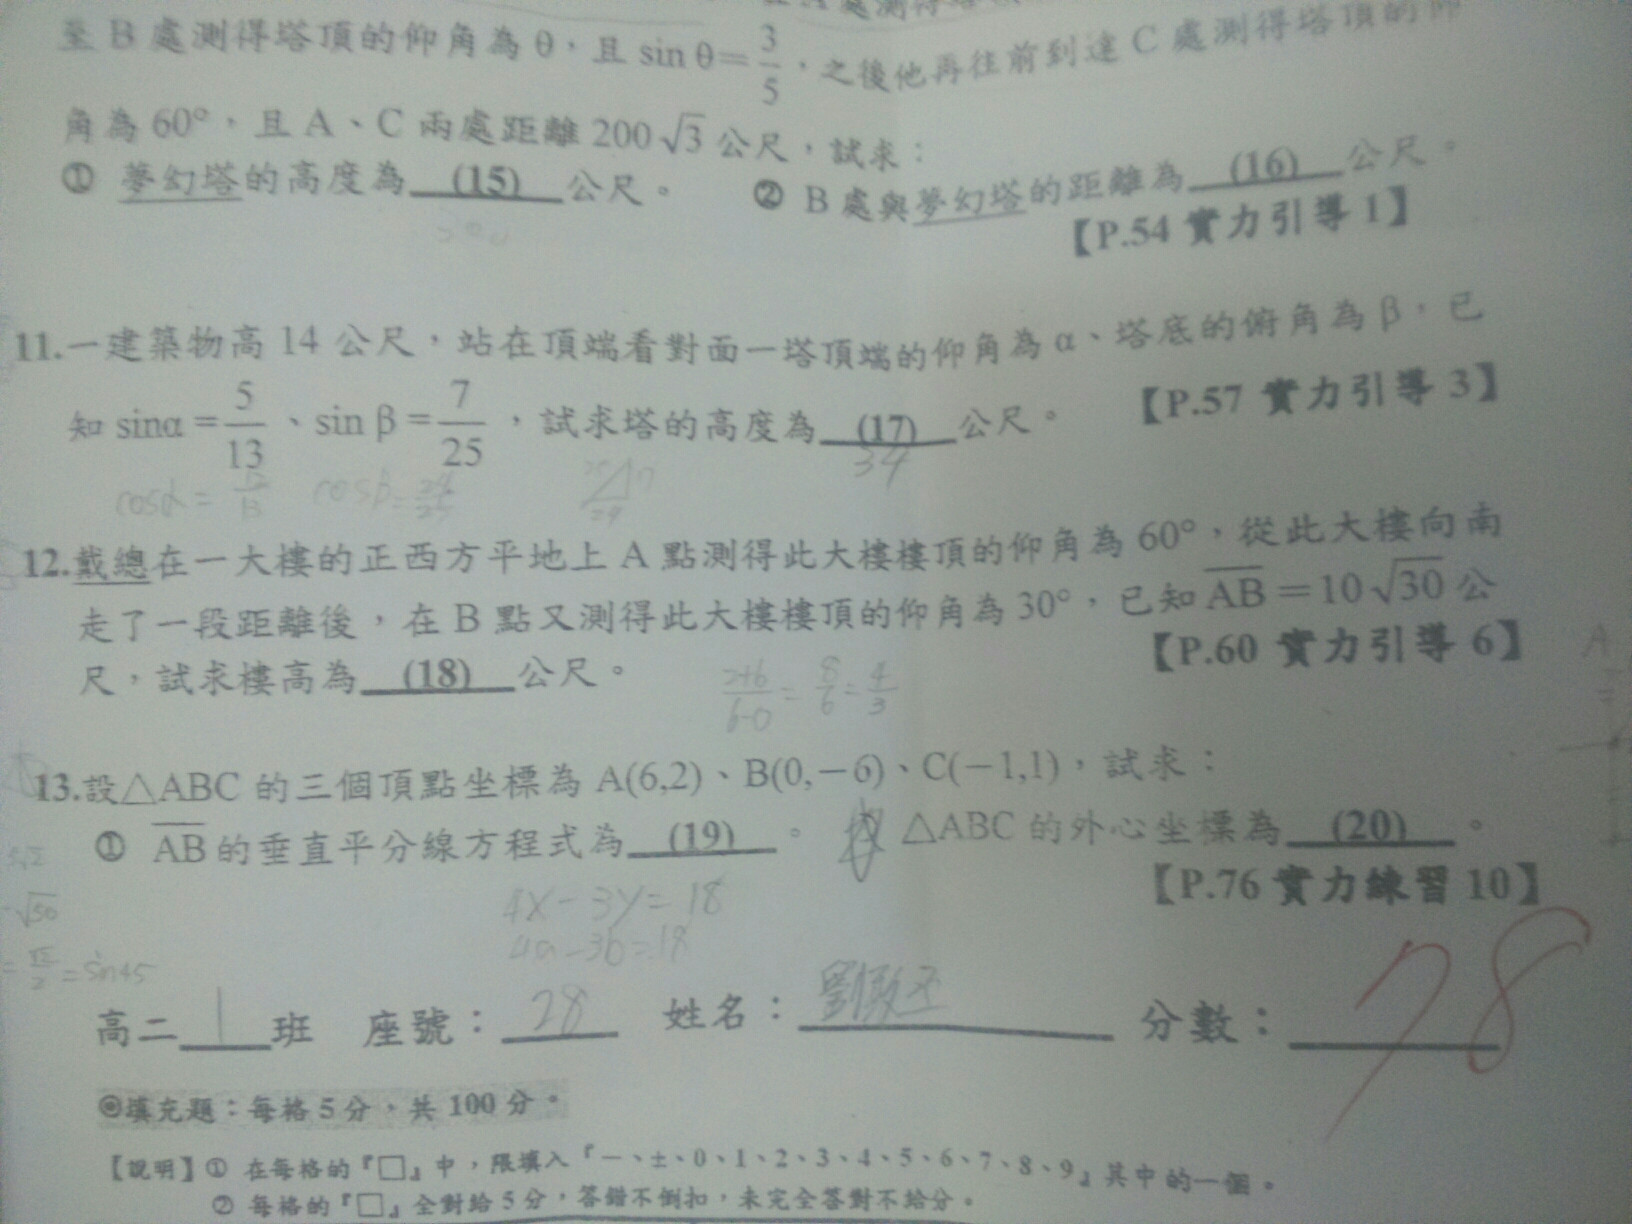 至 B 處測得塔頂的仰角為 θ，且 sin θ=3/5，之後他再往前到達 C 處測得塔頂的仰
角為 60°，且 A、C 兩處距離 200√3 公尺，試求：
① 夢幻塔的高度為 (15) 公尺。 ② B 處與夢幻塔的距離為 (16) 公尺。
【P.54 實力引導 1】
11.一建築物高 14 公尺，站在頂端看對面一塔頂端的仰角為 α、塔底的俯角為 β，已
知 sinα=5/13、sin β=7/25，試求塔的高度為 (17) 公尺。 【P.57 實力引導 3】
34
cosα= cosβ=24/25
12.戴總在一大樓的正西方平地上 A 點測得此大樓樓頂的仰角為 60°，從此大樓向南
走了一段距離後，在 B 點又測得此大樓樓頂的仰角為 30°，已知 AB=10√30 公
尺，試求樓高為 (18) 公尺。 【P.60 實力引導 6】
2+6/6-0=8/6=4/3
13.設△ABC 的三個頂點坐標為 A(6,2)、B(0,－6)、C(－1,1)，試求：
① AB 的垂直平分線方程式為 (19) 。 △ABC 的外心坐標為 (20) 。
【P.76 實力練習 10】
4x-3y=18
4a-3b=18
√50
=√2/2=sin45
高二 1 班 座號：28 姓名：劉 分數：78
◎填充題：每格 5 分，共 100 分。
【說明】① 在每格的『□』中，限填入『－、±、0、1、2、3、4、5、6、7、8、9』其中的一個。
② 每格的『□』全對給 5 分，答錯不倒扣，未完全答對不給分。